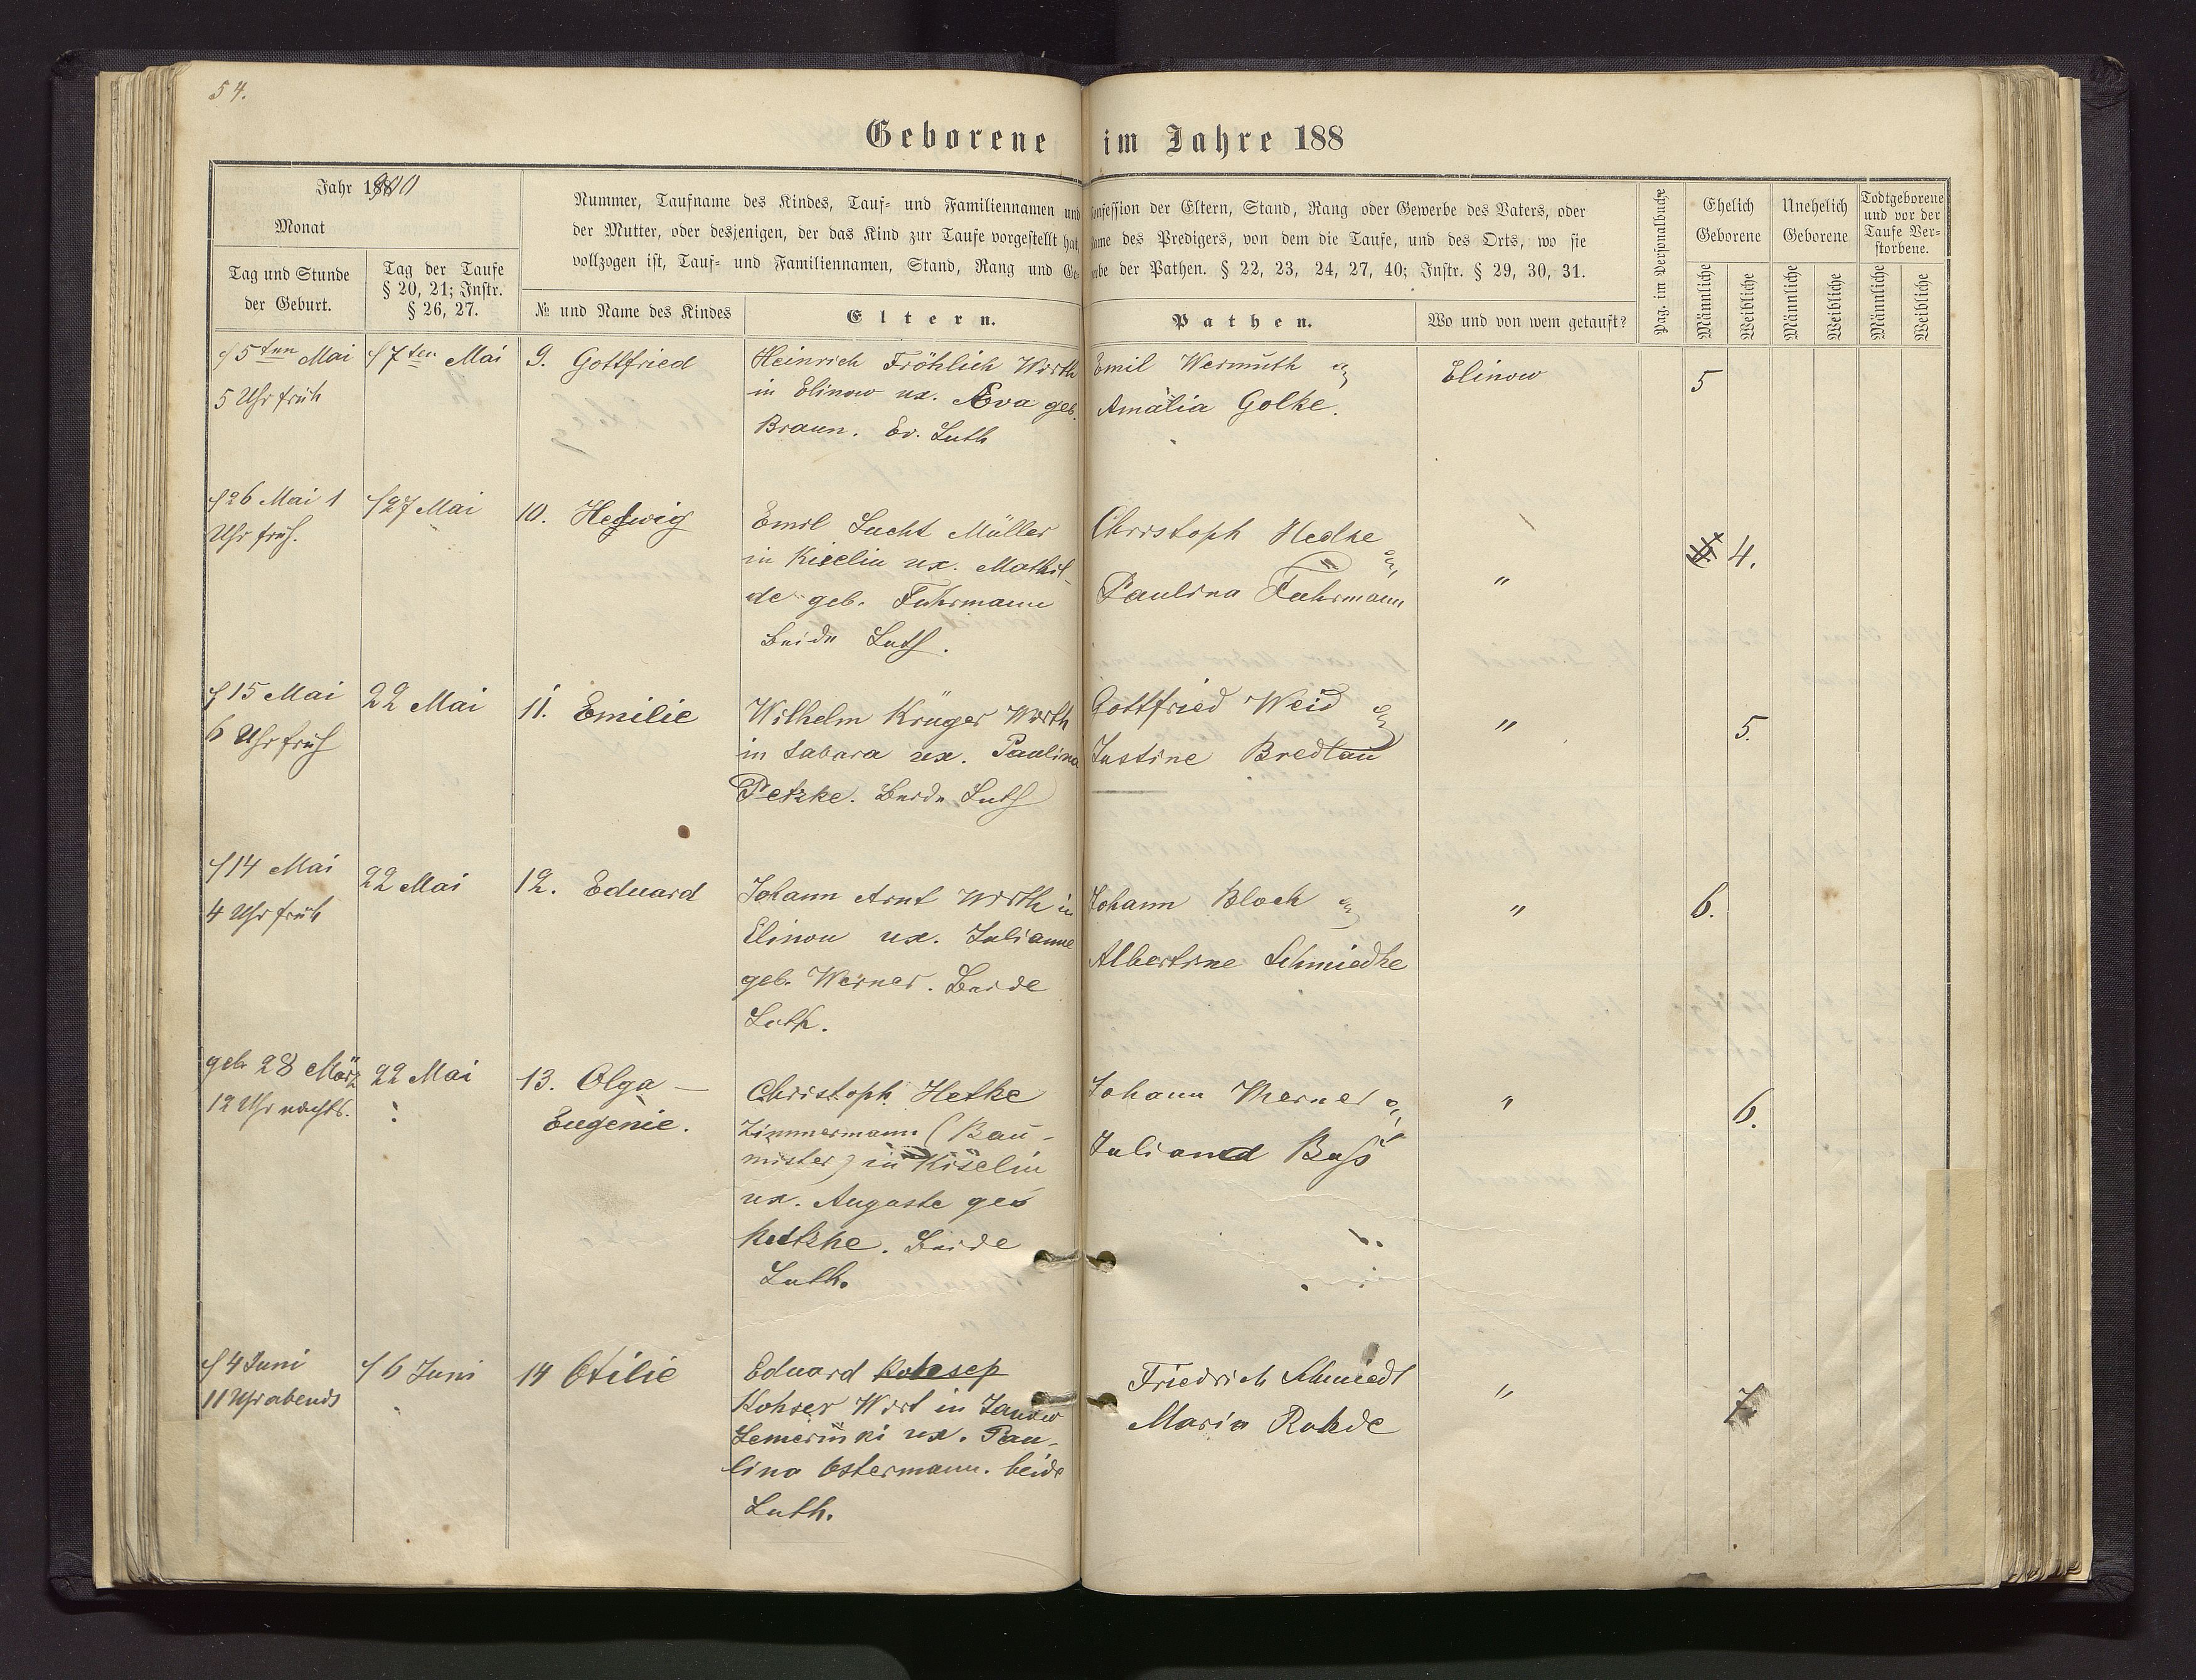 54.
Geborene im Jahre 188
Jahr 1900
Monat
Tag und Stunde
der Geburt.
Tag der Taufe
§ 20, 21; Instr.
§ 26, 27.
Nummer, Taufname des Kindes, Tauf- und Familiennamen und Konfession der Eltern, Stand, Rang oder Gewerbe des Vaters, oder
der Mutter, oder desjenigen, der das Kind zur Taufe vorgestellt hat, Name des Predigers, von dem die Taufe, und des Orts, wo sie
vollzogen ist, Tauf- und Familiennamen, Stand, Rang und Gewerbe der Pathen. § 22, 23, 24, 27, 40; Instr. § 29, 30, 31.
№ und Name des Kindes
Eltern.
Pathen.
Wo und von wem getauft?
Pag. im Personalbuche
Ehelich
Geborene
Unehelich
Geborene
Todtgeborene
und vor der
Taufe Ver-
storbene.
Männliche
Weibliche
Männliche
Weibliche
Männliche
Weibliche
5ten Mai
5 Uhr früh
7ten Mai
9. Gottfried
Heinrich Fröhlich Wirth
in Elinow ux. Eva geb.
Braun. Ev. Luth
Emil Wermuth &
Amalia Golke.
Elinow
5
26 Mai 1
Uhr früh.
27 Mai
10. Hedwig
Emil Lucht Müller
in Kiselin ux. Mathil-
de geb. Fuhrmann
Beide Luth.
Christoph Hedke &
Paulina Fuhrmann
"
4.
15 Mai
6 Uhr früh
22 Mai
11. Emilie
Wilhelm Krüger Wirth
in Sabara ux. Paulina
Petzke. Beide Luth
Gottfried Weid &
Justine Bredlau
"
5.
14 Mai
4 Uhr früh
22 Mai
12. Eduard
Johann Arnt Wirth in
Elinow ux. Julianne
geb. Werner. Beide
Luth.
Johann Block &
Albertine Schmiedke
"
6.
geb 28 März
12 Uhr nachts.
22 Mai
13. Olga —
Eugenie.
Christoph Hetke
Zimmermann (Bau-
mister) in Kiselin
ux. Auguste geb
Beide
Luth.
Johann Werner &
Buss
"
6.
4 Juni
11 Uhr abends
6 Juni
14 Otilie
Eduard
Wirt in Janow
ux. Pau-
lina Ostermann. beide
Luth.
Friedrich Schmiedt
Maria Rohde
"
7